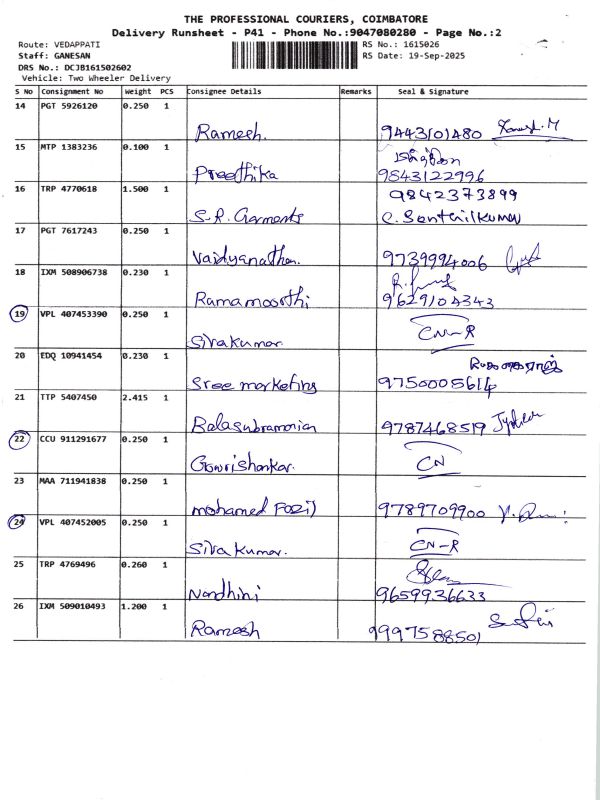 THE PROFESSIONAL COURIERS, COIMBATORE
Delivery Runsheet - P41 - Phone No.:9047080280 - Page No.:2
Route: VEDAPPATI
RS No.: 1615026
Staff: GANESAN
RS Date: 19-Sep-2025
DRS No.: DCJB161502602
Vehicle: Two Wheeler Delivery
S No Consignment No Weight PCS Consignee Details Remarks Seal & Signature
14 PGT 5926120 0.250 1
Ramesh. 9443101480
15 MTP 1383236 0.100 1
Preethika 9843122996
16 TRP 4770618 1.500 1 9842373899
S.R. Garments C. Senthilkumar
17 PGT 7617243 0.250 1
Vaidyanathan. 9739994006
18 IXM 508906738 0.230 1
Ramamoorthi 9629104343
19 VPL 407453390 0.250 1
Sivakumar. CN-R
20 EDQ 10941454 0.230 1
Sree marketing 9750005614
21 TTP 5407450 2.415 1
Balasubramanian 9787468519
22 CCU 911291677 0.250 1
Gowrishankar. CN
23 MAA 711941838 0.250 1
mohamed Fazil 9789709900
24 VPL 407452005 0.250 1
Siva kumar. CN-R
25 TRP 4769496 0.260 1
Nandhini 9659936633
26 IXM 509010493 1.200 1
Ramesh 9997588501